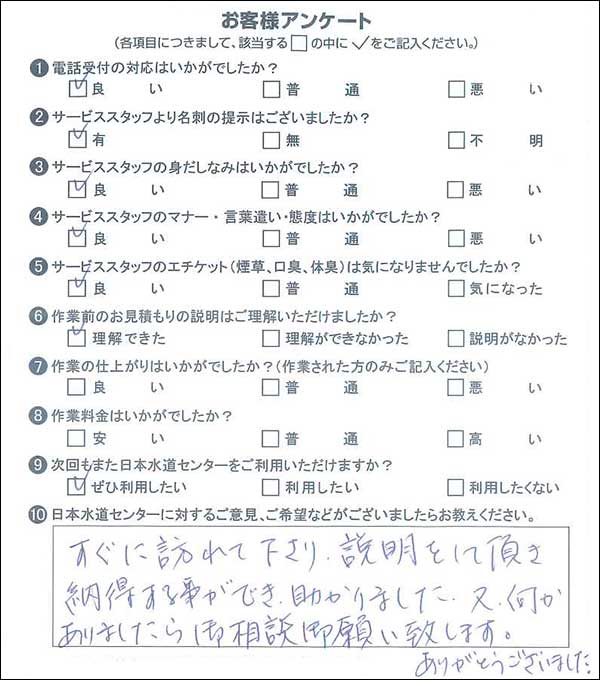 お客様アンケート
(各項目につきまして、該当する□の中に✓をご記入ください。)
❶電話受付の対応はいかがでしたか?
☑良い □普通 □悪い
❷サービススタッフより名刺の提示はございましたか?
☑有 □無 □不明
❸サービススタッフの身だしなみはいかがでしたか?
☑良い □普通 □悪い
❹サービススタッフのマナー・言葉遣い・態度はいかがでしたか?
☑良い □普通 □悪い
❺サービススタッフのエチケット(煙草、口臭、体臭)は気になりませんでしたか?
☑良い □普通 □気になった
❻作業前のお見積もりの説明はご理解いただけましたか?
☑理解できた □理解ができなかった □説明がなかった
❼作業の仕上がりはいかがでしたか?(作業された方のみご記入ください)
□良い □普通 □悪い
❽作業料金はいかがでしたか?
□安い □普通 □高い
❾次回もまた日本水道センターをご利用いただけますか?
☑ぜひ利用したい □利用したい □利用したくない
❿日本水道センターに対するご意見、ご希望などがございましたらお教えください。
すぐに訪れて下さり、説明をして頂き
納得する事ができ、助かりました。又、何か
ありましたら御相談御願い致します。
ありがとうございました。